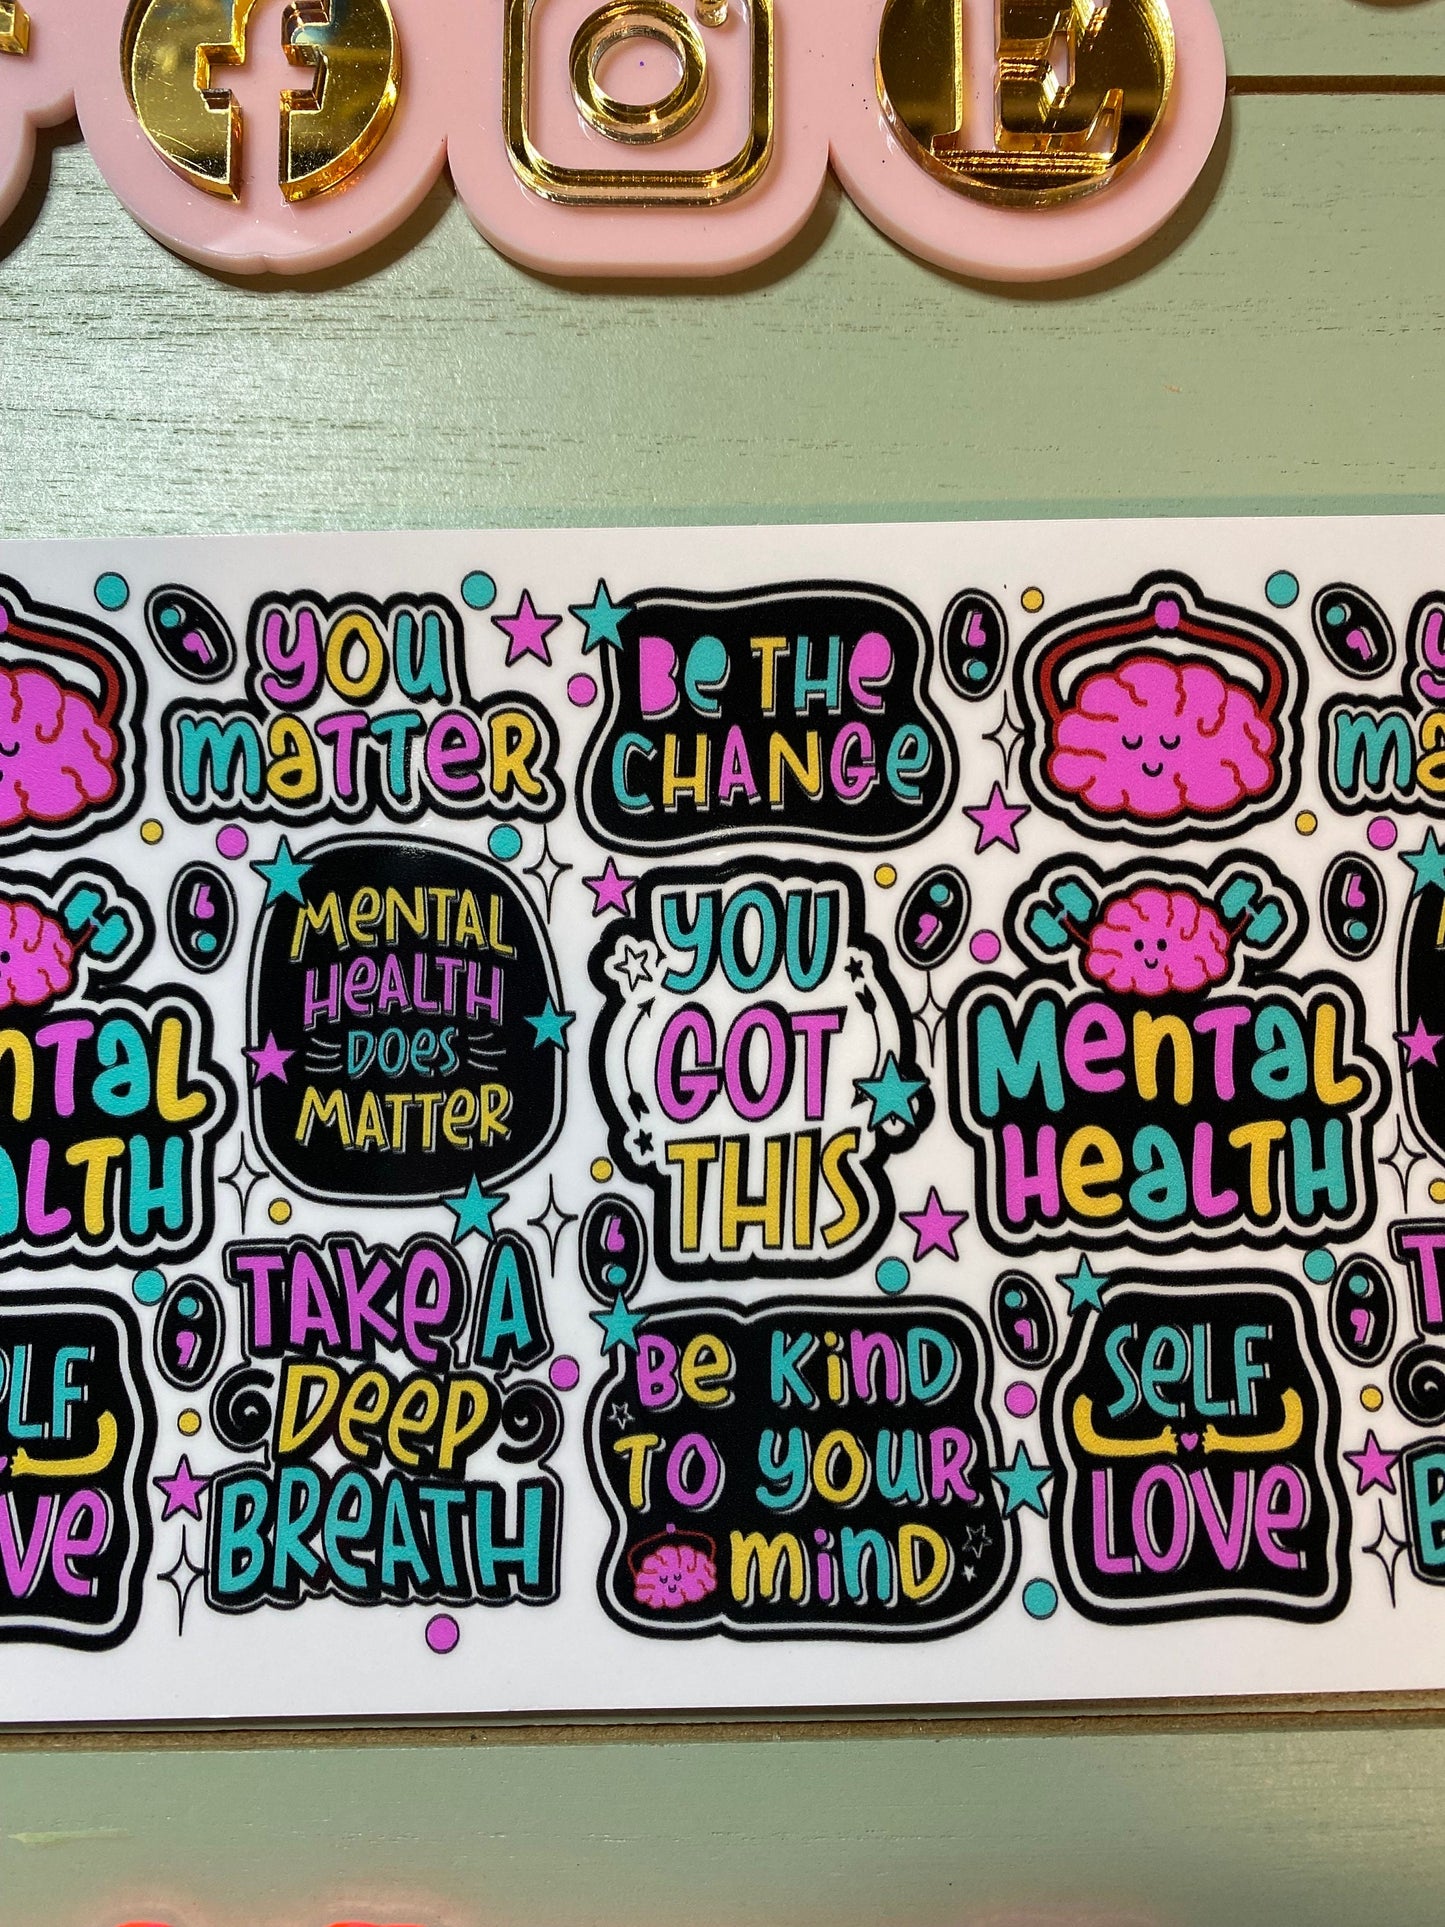 f
E
YOU
MATTER
BE THE
CHANGE
YOU
MATTER
MENTAL
HEALTH
DOES
MATTER
YOU
GOT
THIS
MENTAL
HEALTH
MENTAL
HEALTH
TAKE A
DEEP
BREATH
BE KIND
TO YOUR
MIND
SELF
LOVE
SELF
LOVE